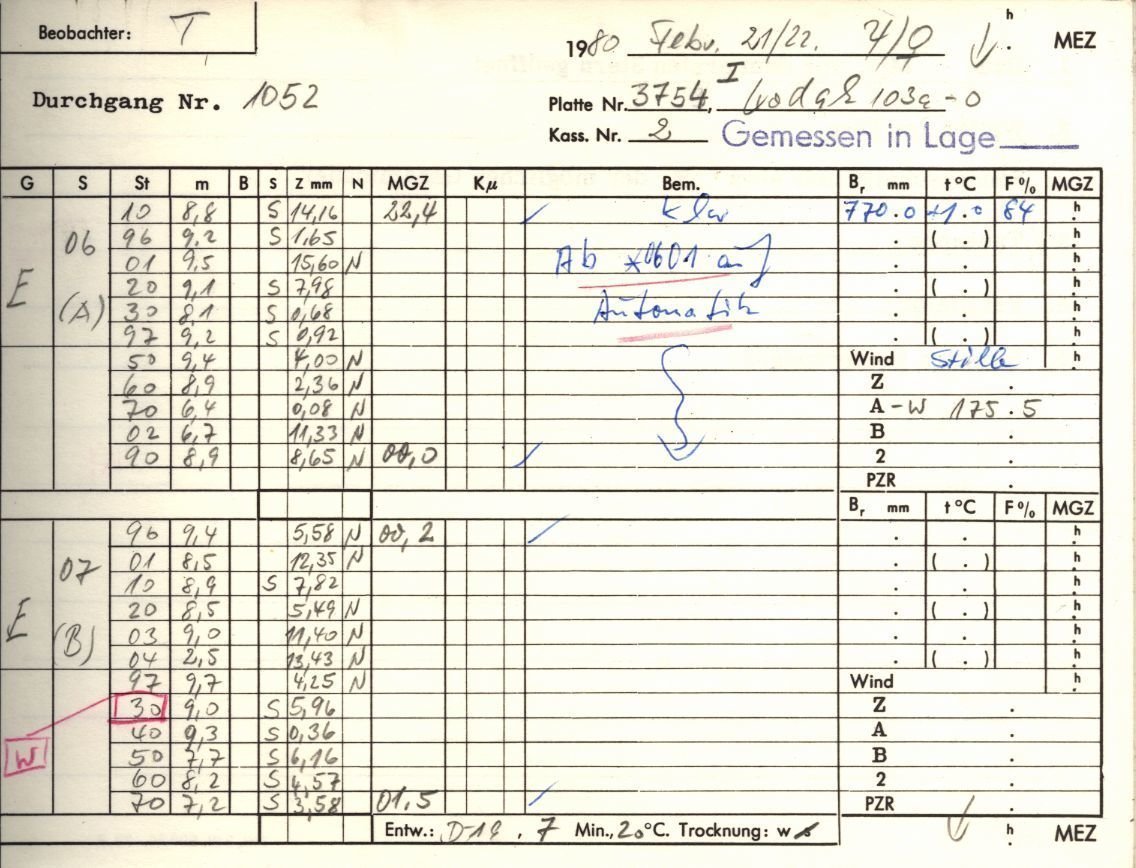 Beobachter: T
1980 Febr. 21/22. h MEZ
Durchgang Nr. 1052
Platte Nr. 3754, I Kodak 103a-O
Kass. Nr. 2 Gemessen in Lage
G S St m B S Z mm N MGZ Kμ Bem. Br mm t °C F % MGZ
10 8,8 S 14,16 22,4 klar 770.0 +1.0 84 h
06 96 9,2 S 1,65 . ( . ) h
01 9,5 15,60 N Ab *0601 auf . . h
E 20 9,1 S 7,98 . ( . ) h
(A) 30 8,1 S 0,68 Automatik . . h
97 9,2 S 0,92 . ( . ) h
50 9,4 4,00 N Wind Stille h
60 8,9 2,36 N Z .
70 6,4 0,08 N A -W 175.5
02 6,7 11,33 N B .
90 8,9 8,65 N 00,0 2 .
PZR .
Br mm t °C F % MGZ
96 9,4 5,58 N 00,2 . . h
07 01 8,5 12,35 N . ( . ) h
10 8,9 S 7,82 . . h
E 20 8,5 5,49 N . ( . ) h
(B) 03 9,0 11,40 N . . h
04 2,5 13,43 N . ( . ) h
97 9,7 4,25 N Wind h
30 9,0 S 5,96 Z .
40 9,3 S 0,36 A .
W 50 7,7 S 6,16 B .
60 8,2 S 4,57 2 .
70 7,2 S 3,58 01,5 PZR .
Entw.: D-19 . 7 Min., 20 °C. Trocknung: w h MEZ